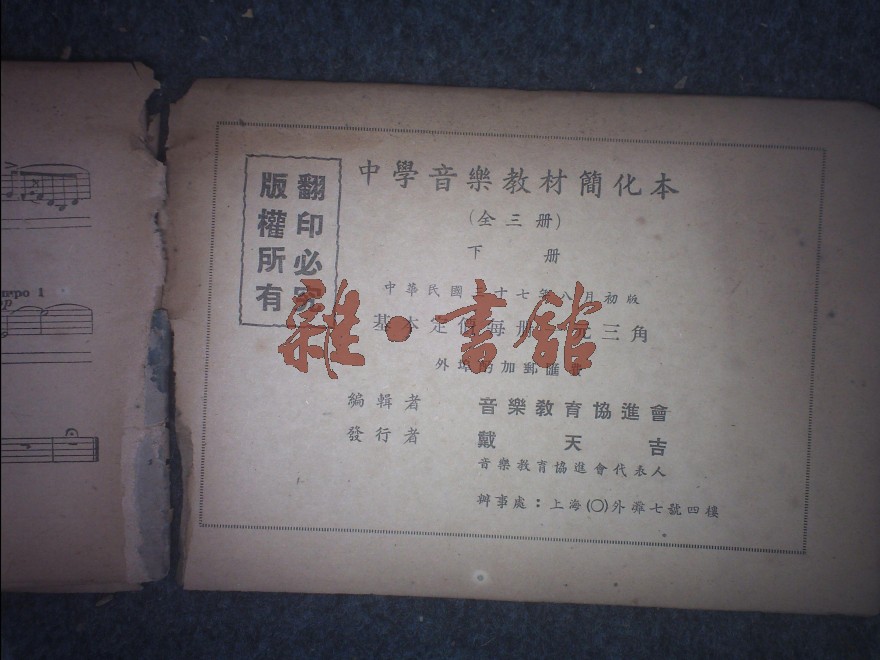 mpo 1
p
版權所有
翻印必究
中學音樂教材簡化本
(全三册)
下 册
中華民國 十七年八月初版
基本定價每册 元三角
外埠酌加郵匯
編輯者 音樂教育協進會
發行者 戴天吉
音樂教育協進會代表人
辦事處：上海(〇)外灘七號四樓
雜·書館